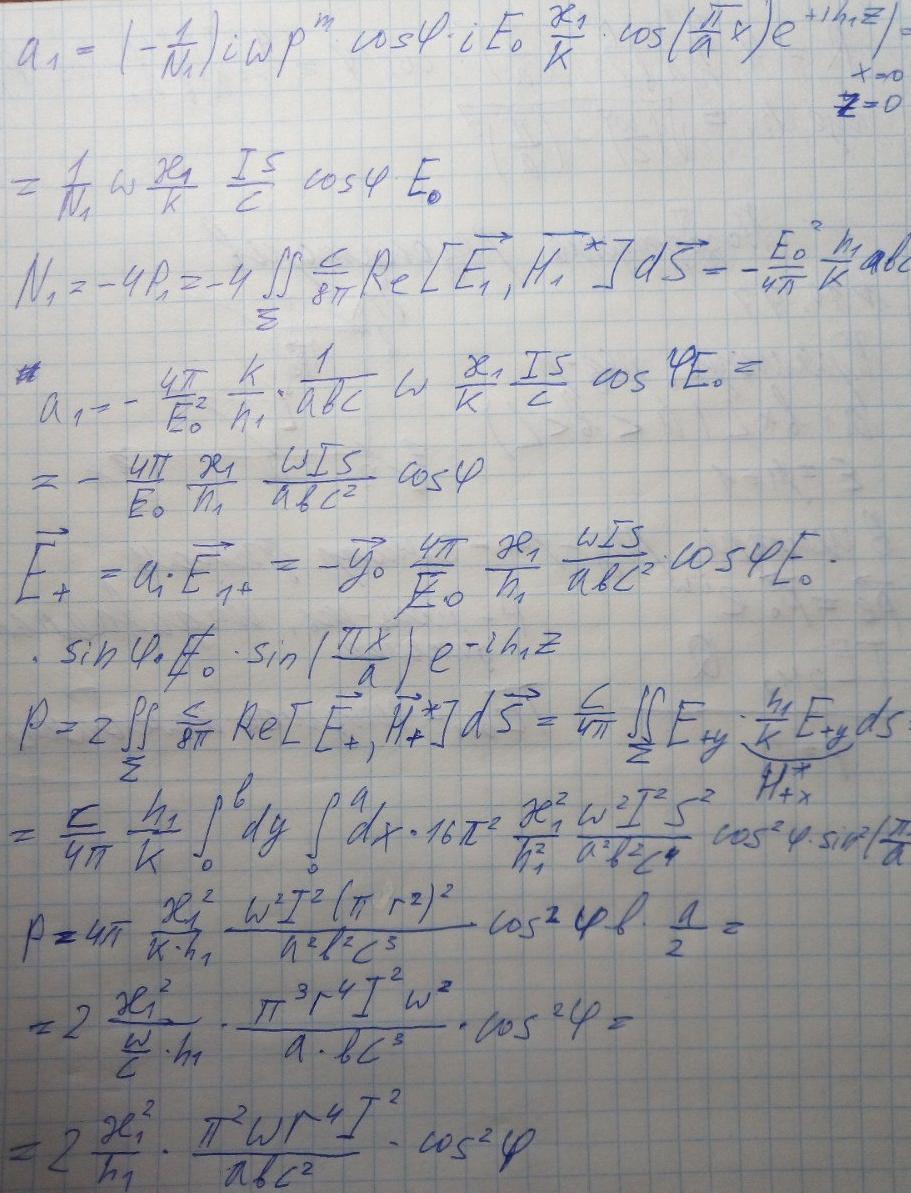 a₁ = (-1/N₁) i ω p^m cosφ · i E₀ ϰ₁/k · cos(π/a x) e^{+ih₁z} |_{x=0, z=0} =
= 1/N₁ ω ϰ₁/k IS/c cosφ · E₀
N₁ = -4P₁ = -4 ∬_Σ c/8π Re[E⃗₁, H⃗₁*] dS⃗ = - E₀²/4π h₁/k abc
a₁ = - 4π/E₀² k/h₁ · 1/abc ω ϰ₁/k IS/c cosφ E₀ =
= - 4π/E₀ ϰ₁/h₁ ωIS/abc² cosφ
E⃗₊ = a₁ · E⃗₁₊ = -y⃗₀ 4π/E₀ ϰ₁/h₁ ωIS/abc² · cosφ E₀ ·
· sinφ · E₀ · sin(πx/a) e^{-ih₁z}
P = 2 ∬_Σ c/8π Re[E⃗₊, H⃗₊*] dS⃗ = c/4π ∬_Σ E₊y · h₁/k E₊y ds =
H₊x*
= c/4π h₁/k ∫₀^b dy ∫₀^a dx · 16π² ϰ₁²/h₁² ω²I²S²/a²b²c⁴ cos²φ · sin²(π/a
P = 4π ϰ₁²/k·h₁ ω²I²(πr²)²/a²b²c³ cos²φ b · a/2 =
= 2 ϰ₁²/(ω/c · h₁) · π³r⁴I²ω²/a·bc³ · cos²φ =
= 2 ϰ₁²/h₁ · π²ωr⁴I²/abc² · cos²φ